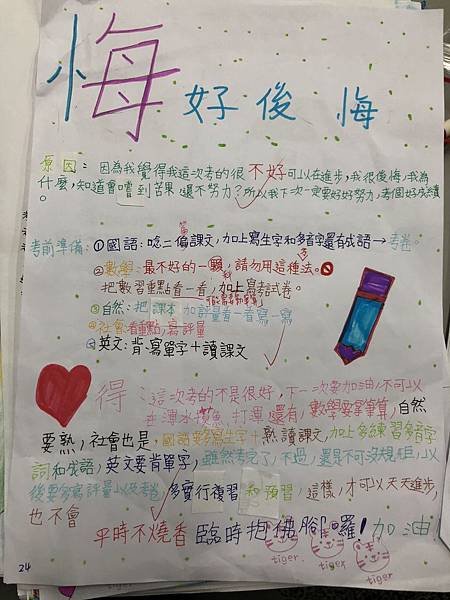 悔 好後悔
原因：因為我覺得我這次考的很不好可以在進步，我很後悔，我為
什麼，知道會嚐到苦果還不努力？所以我下次一定要好好努力，考個好成績
。
考前準備：①國語：唸二偏課文，加上寫生字和多音字還有成語→考卷。
②數學：最不好的一顆，請勿用這種法。
把數習重點看一看，加上寫考試卷。
③自然：把課本加評量看一看寫一寫
④社會：看重點，寫評量
⑤英文：背寫單字＋讀課文
得：這次考的不是很好，下一次要加油，不可以
在渾水摸魚打渾，還有，數學要筆算，自然
要熟，社會也是，國語要多寫生字＋熟讀課文，加上多練習多音字
詞和成語，英文要背單字，雖然考完了，不過，還是不可沒規矩，以
後要多寫評量以及考卷，多實行複習和預習，這樣，才可以天天進步，
也不會
平時不燒香臨時抱佛腳囉！加油
tiger tiger tiger
24